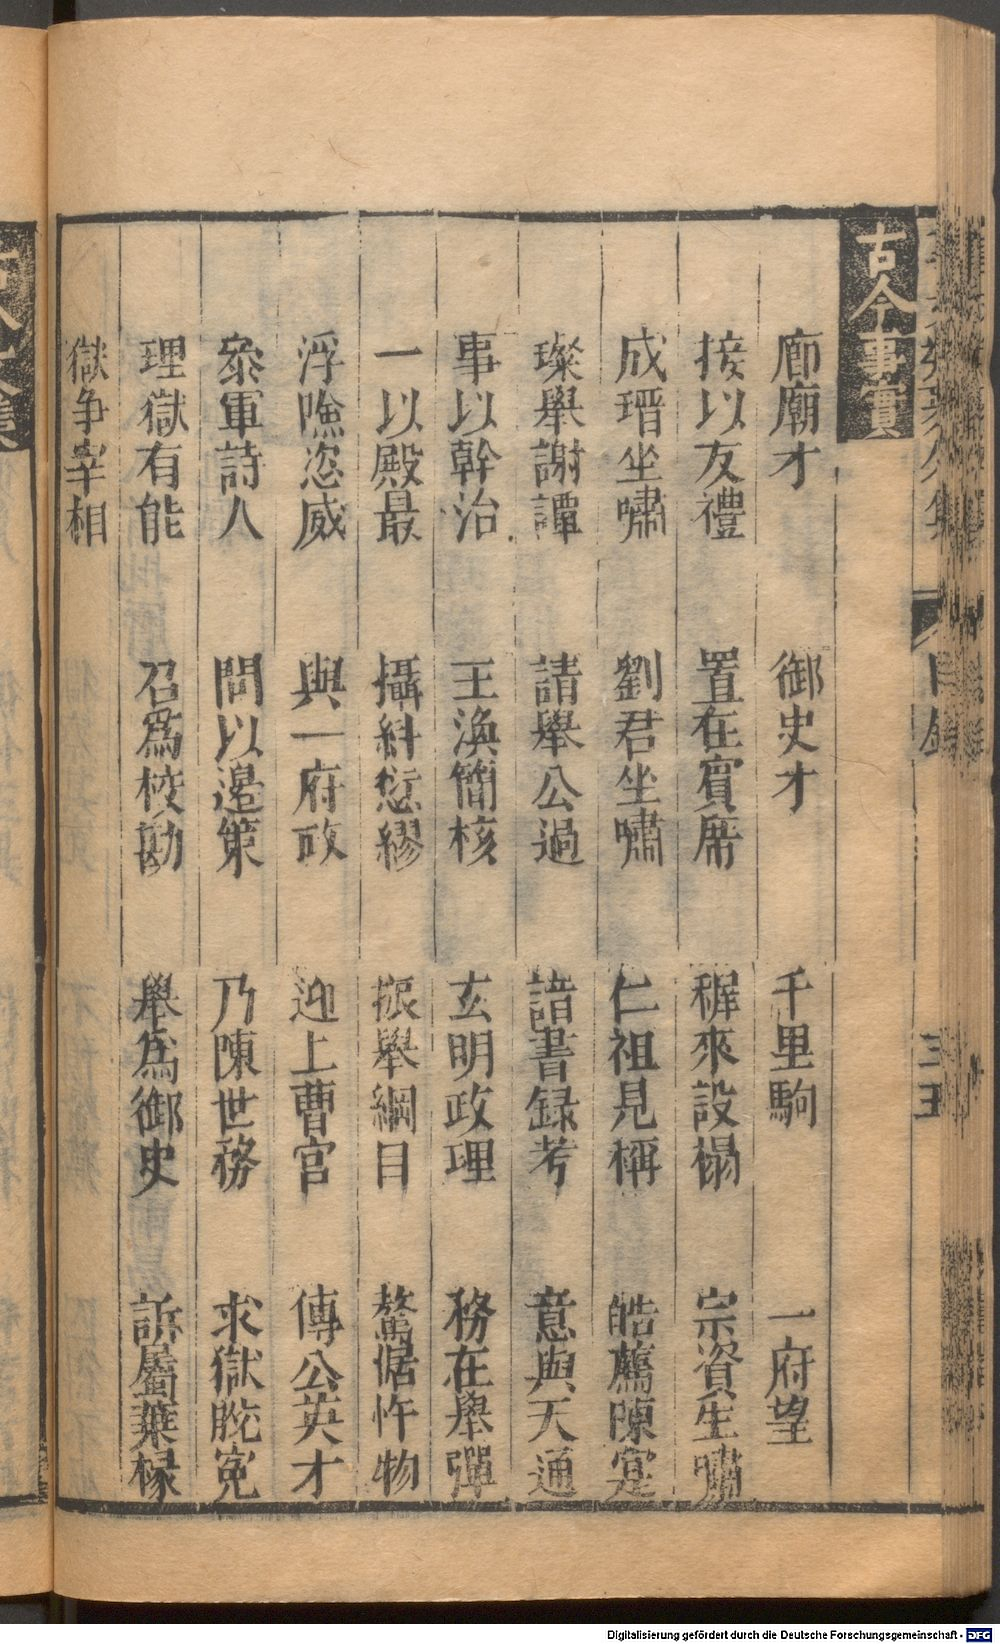 古今事實
廊廟才　御史才　千里駒　一府望
接以友禮　置在賓席　稺來設榻　宗資坐嘯
成瑨坐嘯　劉君坐嘯　仁祖見稱　皓薦陳寔
璨舉謝譚　請舉公過　諳書録考　意與天通
事以幹治　王渙簡核　玄明政理　務在舉彈
一以殿最　攝糾愆繆　振舉綱目　驁倨忤物
浮險恣威　與一府政　迎上曹官　傅公英才
叅軍詩人　問以邉策　乃陳世務　求獄脫寃
理獄有能　召爲校勘　舉爲御史　訴屬葉椽
獄争宰相
目錄
Digitalisierung gefördert durch die Deutsche Forschungsgemeinschaft - DFG